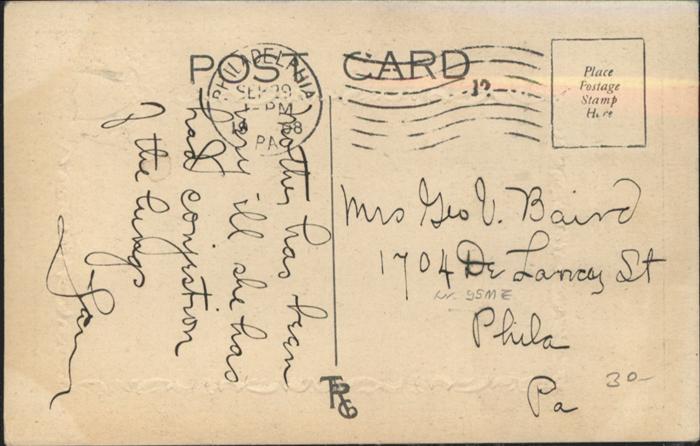 POST CARD
PHILADELPHIA
SEP 29
PM
PA
12
Place
Postage
Stamp
Here
mother has been
very ill she has
had conjestion
of the lungs
Mrs Geo V. Baird
1704 De Lancey St
Phila
Pa
30-